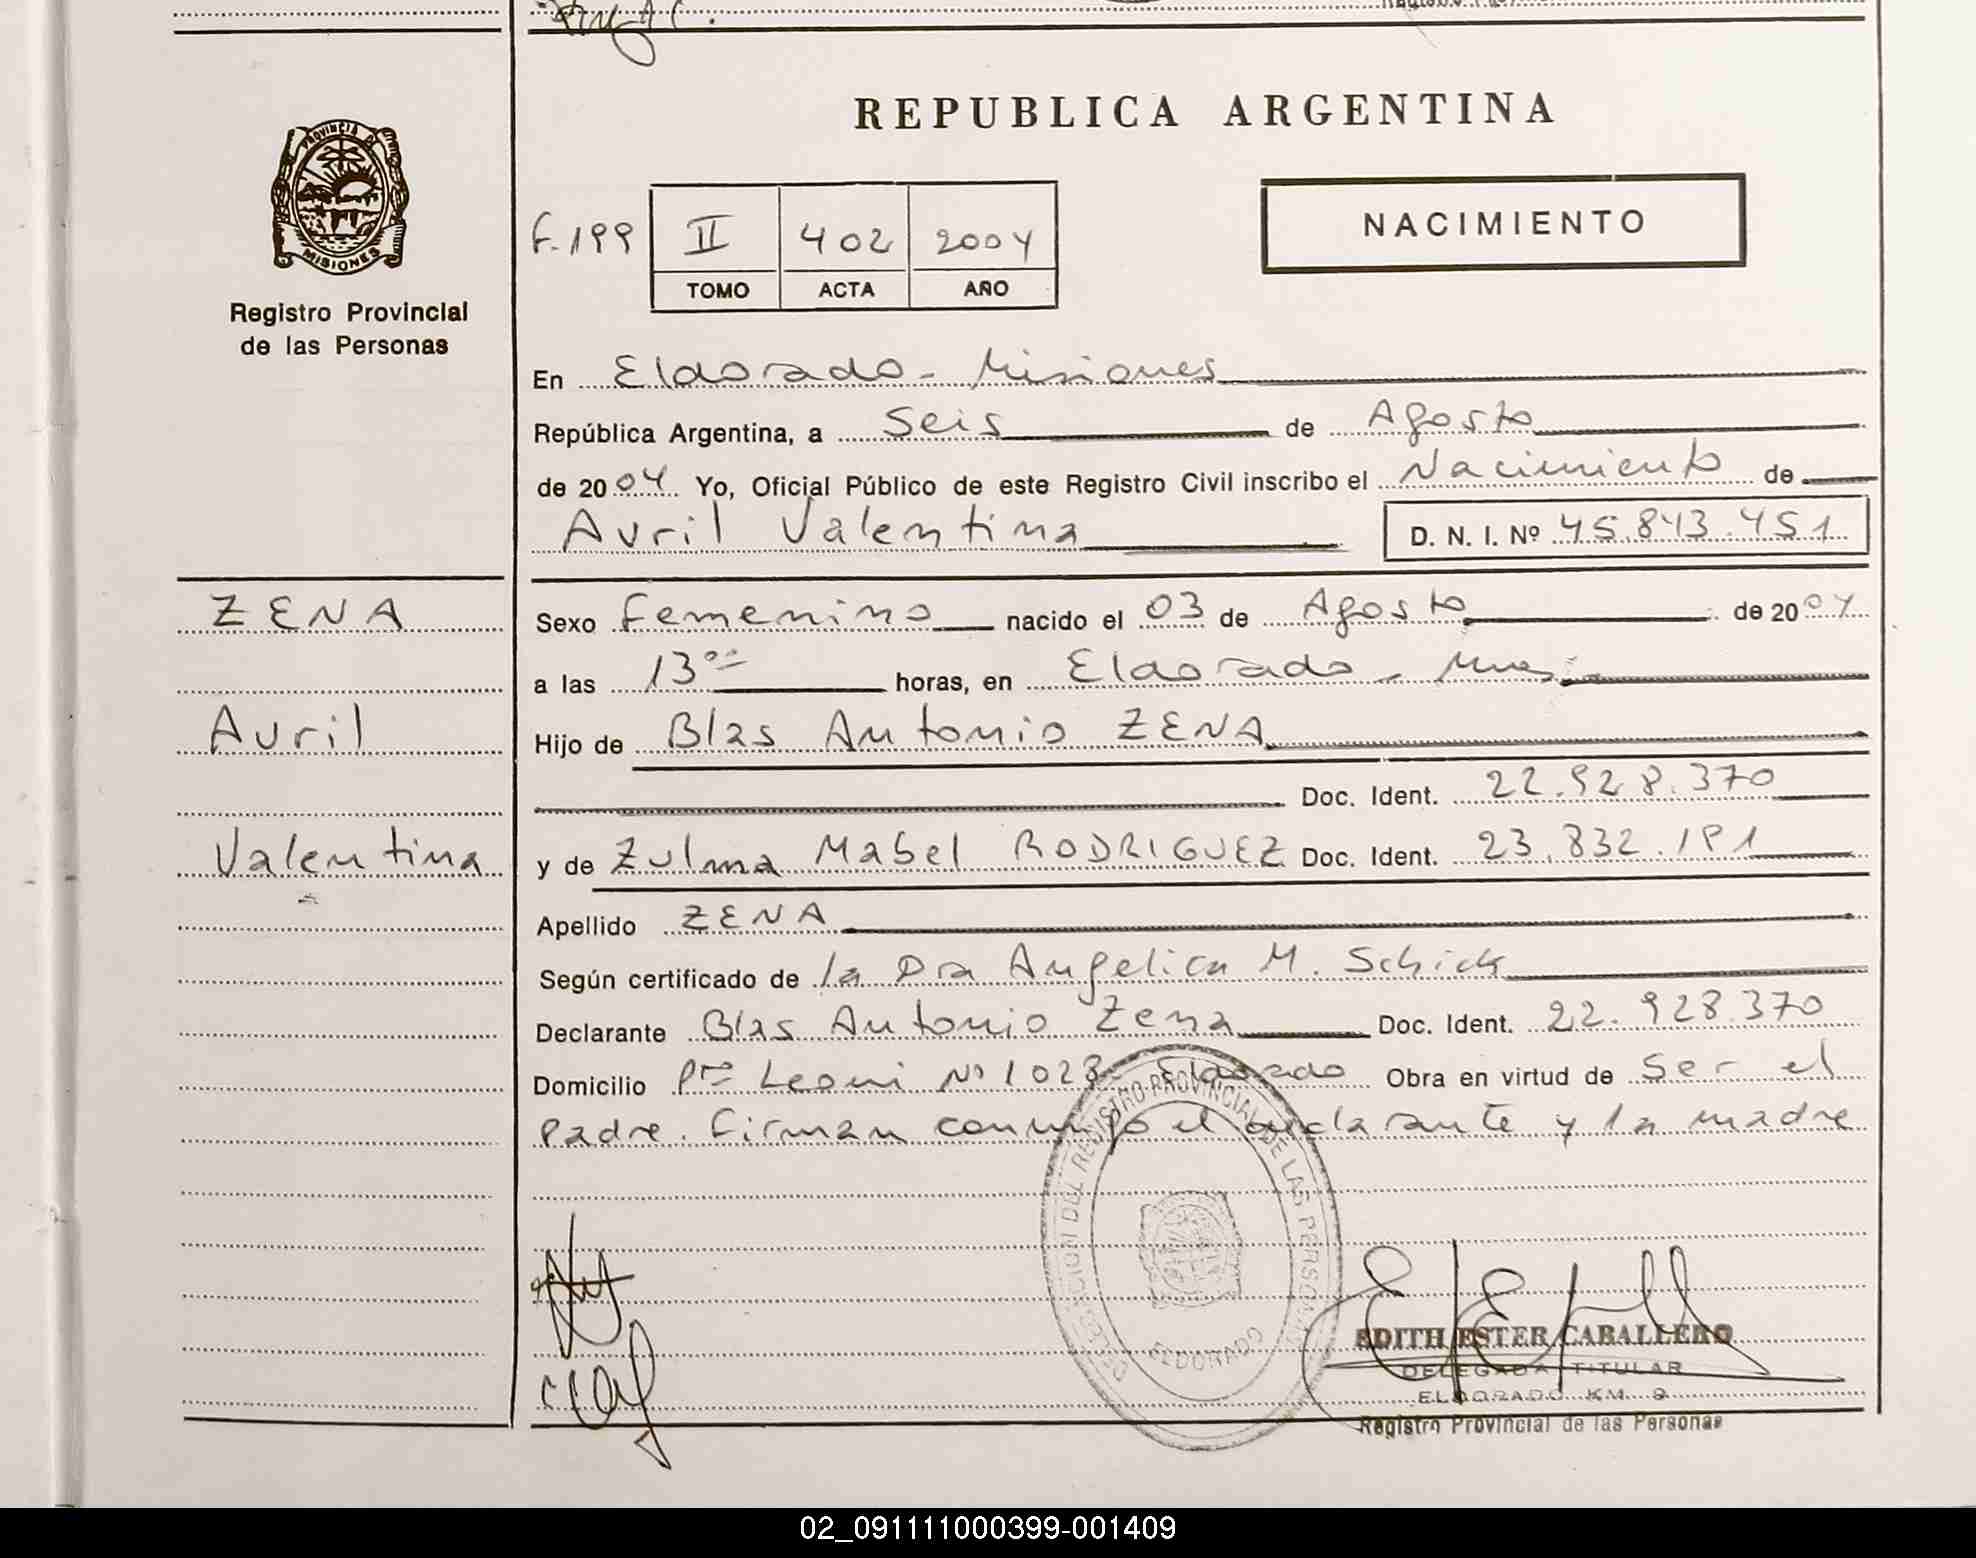 PROVINCIA DE
MISIONES
Registro Provincial
de las Personas
REPUBLICA ARGENTINA
NACIMIENTO
F. 199 II 402 2004
TOMO ACTA AÑO
En Eldorado - Misiones
República Argentina, a Seis de Agosto
de 2004 Yo, Oficial Público de este Registro Civil inscribo el Nacimiento de
Avril Valentina D. N. I. Nº 45.843.451
ZENA
Sexo Femenino nacido el 03 de Agosto de 2004
a las 13 00 horas, en Eldorado - Mnes.
Avril
Hijo de Blas Antonio ZENA
Doc. Ident. 22.928.370
Valentina
y de Zulma Mabel RODRIGUEZ Doc. Ident. 23.832.191
Apellido ZENA
Según certificado de la Dra Angelica M. Schick
Declarante Blas Antonio Zena Doc. Ident. 22.928.370
Domicilio Pte Leoni Nº 1028 - Eldorado Obra en virtud de Ser el
padre. Firman conmigo el declarante y la madre
DELEGACION DEL REGISTRO PROVINCIAL DE LAS PERSONAS
ELDORADO
EDITH ESTER CABALLERO
DELEGADA TITULAR
ELDORADO KM. 9
Registro Provincial de las Personas
02_091111000399-001409